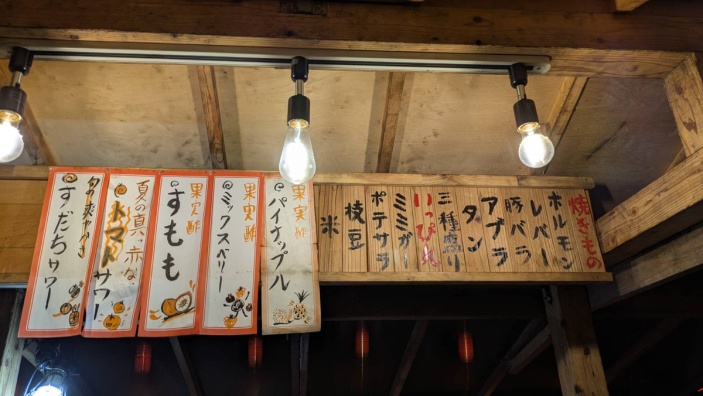 焼きもの
ホルモン
レバー
豚バラ
アブラ
タン
三種盛り
いっぴん
ミミガー
ポテサラ
枝豆
米
果実酢
パイナップル
果実酢
ミックスベリー
果実酢
すもも
夏の真っ赤な
トマトサワー
旬の爽やか
すだちサワー